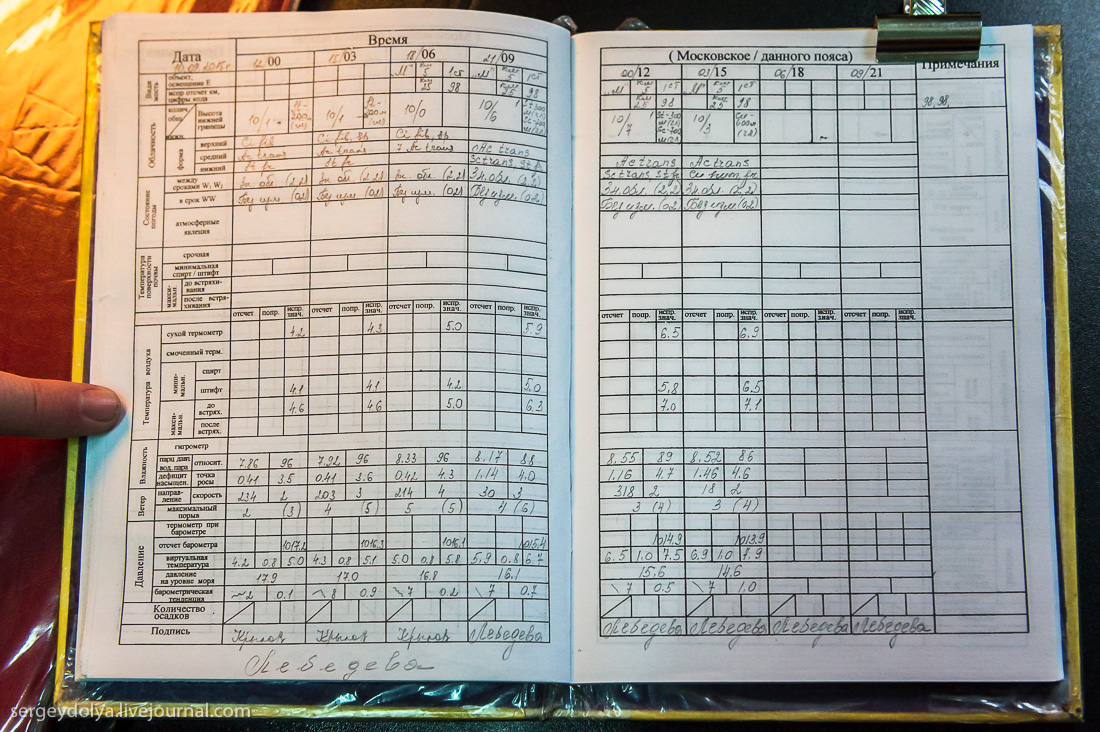 Время
Дата
12/00
15/03
18/06
21/09
объект,
освещение Е
испр отсчет км,
цифры кода
98
98
Облачность
колич.
общ.
нижн.
Высота
нижней
границы
10/1
10/1
10/0
10/6
форма
верхний
средний
нижний
Ac trans
Состояние
погоды
между
сроками W₁ W₂
(2.2)
(2.2)
(2.2)
(2.2)
в срок WW
(02)
(02)
(02)
(02)
атмосферные
явления
Температура
поверхности
почвы
срочная
минимальная
спирт / штифт
макси-
мальн.
до встряхи-
вания
после встря-
хивания
отсчет попр. испр. знач. отсчет попр. испр. знач. отсчет попр. испр. знач. отсчет попр. испр. знач.
Температура воздуха
сухой термометр 4.2 4.3 5.0 5.9
смоченный терм.
мини-
мальн.
спирт
штифт 4.1 4.1 4.2 5.0
макси-
мальн.
до
встрях. 4.6 4.6 5.0 6.3
после
встрях.
Влажность
гигрометр
парц давл.
вод. пара относит. 7.86 96 7.92 96 8.33 96 8.17 88
дефицит
насыщен. точка
росы 0.41 3.5 0.41 3.6 0.42 4.3 1.14 4.0
Ветер
направ-
ление скорость 234 2 203 3 214 4 30 3
максимальный
порыв 2 (3) 4 (5) 5 (5) 4 (6)
Давление
термометр при
барометре
отсчет барометра 1017.2 1016.3 1016.1 1015.4
виртуальная
температура 4.2 0.8 5.0 4.3 0.8 5.1 5.0 0.8 5.8 5.9 0.8 6.7
давление
на уровне моря 17.9 17.0 16.8 16.1
барометрическая
тенденция 2 0.1 8 0.9 7 0.2 7 0.7
Количество
осадков
Подпись Крылов Крылов Крылов Лебедева
Лебедева
( Московское / данного пояса)
Примечания
00/12
03/15
06/18
09/21
98
98
98, 98,
10/7
10/3
Ac trans Ac trans
Sc trans St fr Cu hum, fr
Зн. обл. (2.2) Зн. обл. (2.2)
Без изм. (02) Без изм (02)
отсчет попр. испр. знач. отсчет попр. испр. знач. отсчет попр. испр. знач. отсчет попр. испр. знач.
6.5 6.9
5.8 6.5
7.0 7.1
8.55 89 8.52 86
1.16 4.7 1.46 4.6
318 2 18 2
3 (4) 3 (4)
1014.9 1013.9
6.5 1.0 7.5 6.9 1.0 7.9
15.6 14.6
7 0.5 7 1.0
Лебедева Лебедева Лебедева Лебедева
sergeydolya.livejournal.com